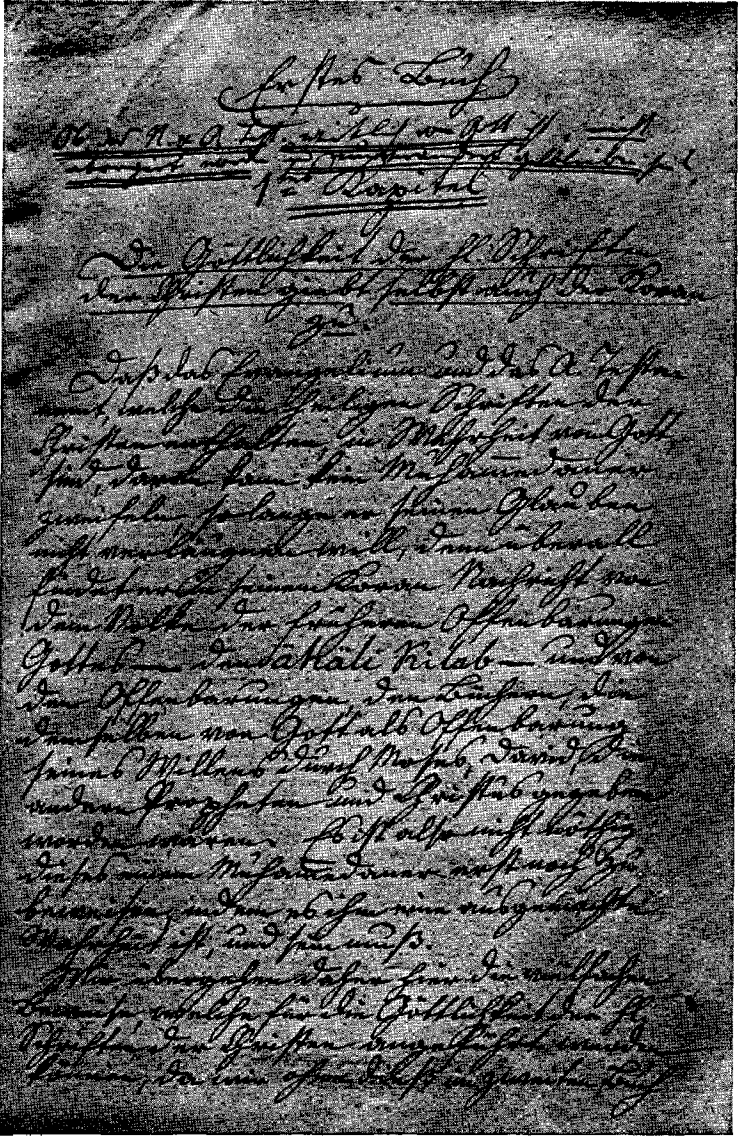 Erstes Buch
Ob das N u A Tst wirklich von Gott ist, nicht
abrogiert und
1tes Kapitel
Die Göttlichkeit der hl. Schriften
der Christen giebt selbst auch der Koran
zu.
Daß das Evangelium und das A. Testa-
ment, welche die heiligen Schriften der
Christen enthalten, in Wahrheit von Gott
sind, daran kann kein Muhammedaner
zweifeln, solange er seinen Glauben
nicht verläugnen will, denn überall
findet er in seinem Koran Nachricht von
dem Volke der früheren Offenbarungen
Gottes — den ahäli Kitab — und von
den Offenbarungen, den Büchern, die
demselben von Gott als Offenbarung
seines Willens durch Moses, David, die
andern Propheten und Christus gegeben
worden waren. Es ist also nicht nöthig
dieses einem Muhammedaner erst noch zu
beweisen, indem es ihm eine ausgemachte
Wahrheit ist, und sein muß.
Wir übergehen daher hier die vielfachen
Beweise, welche für die Göttlichkeit der hl.
Schriften der Christen angeführt werden
können, da wir im zweiten Buch